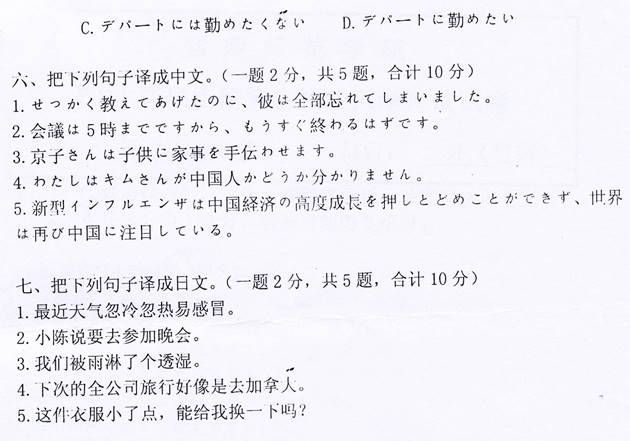 C. デパートには勤めたくない D. デパートに勤めたい
六、把下列句子译成中文。(一题2分，共5题，合计10分)
1. せつかく教えてあげたのに、彼は全部忘れてしまいました。
2. 会議は5時までですから、もうすぐ終わるはずです。
3. 京子さんは子供に家事を手伝わせます。
4. わたしはキムさんが中国人かどうか分かりません。
5. 新型インフルエンザは中国経済の高度成長を押しとどめことができず、世界
は再び中国に注日している。
七、把下列句子译成日文。(一题2分，共5题，合计10分)
1. 最近天气忽冷忽热易感冒。
2. 小陈说要去参加晚会。
3. 我们被雨淋了个透湿。
4. 下次的全公司旅行好像是去加拿大。
5. 这件衣服小了点，能给我换一下吗？